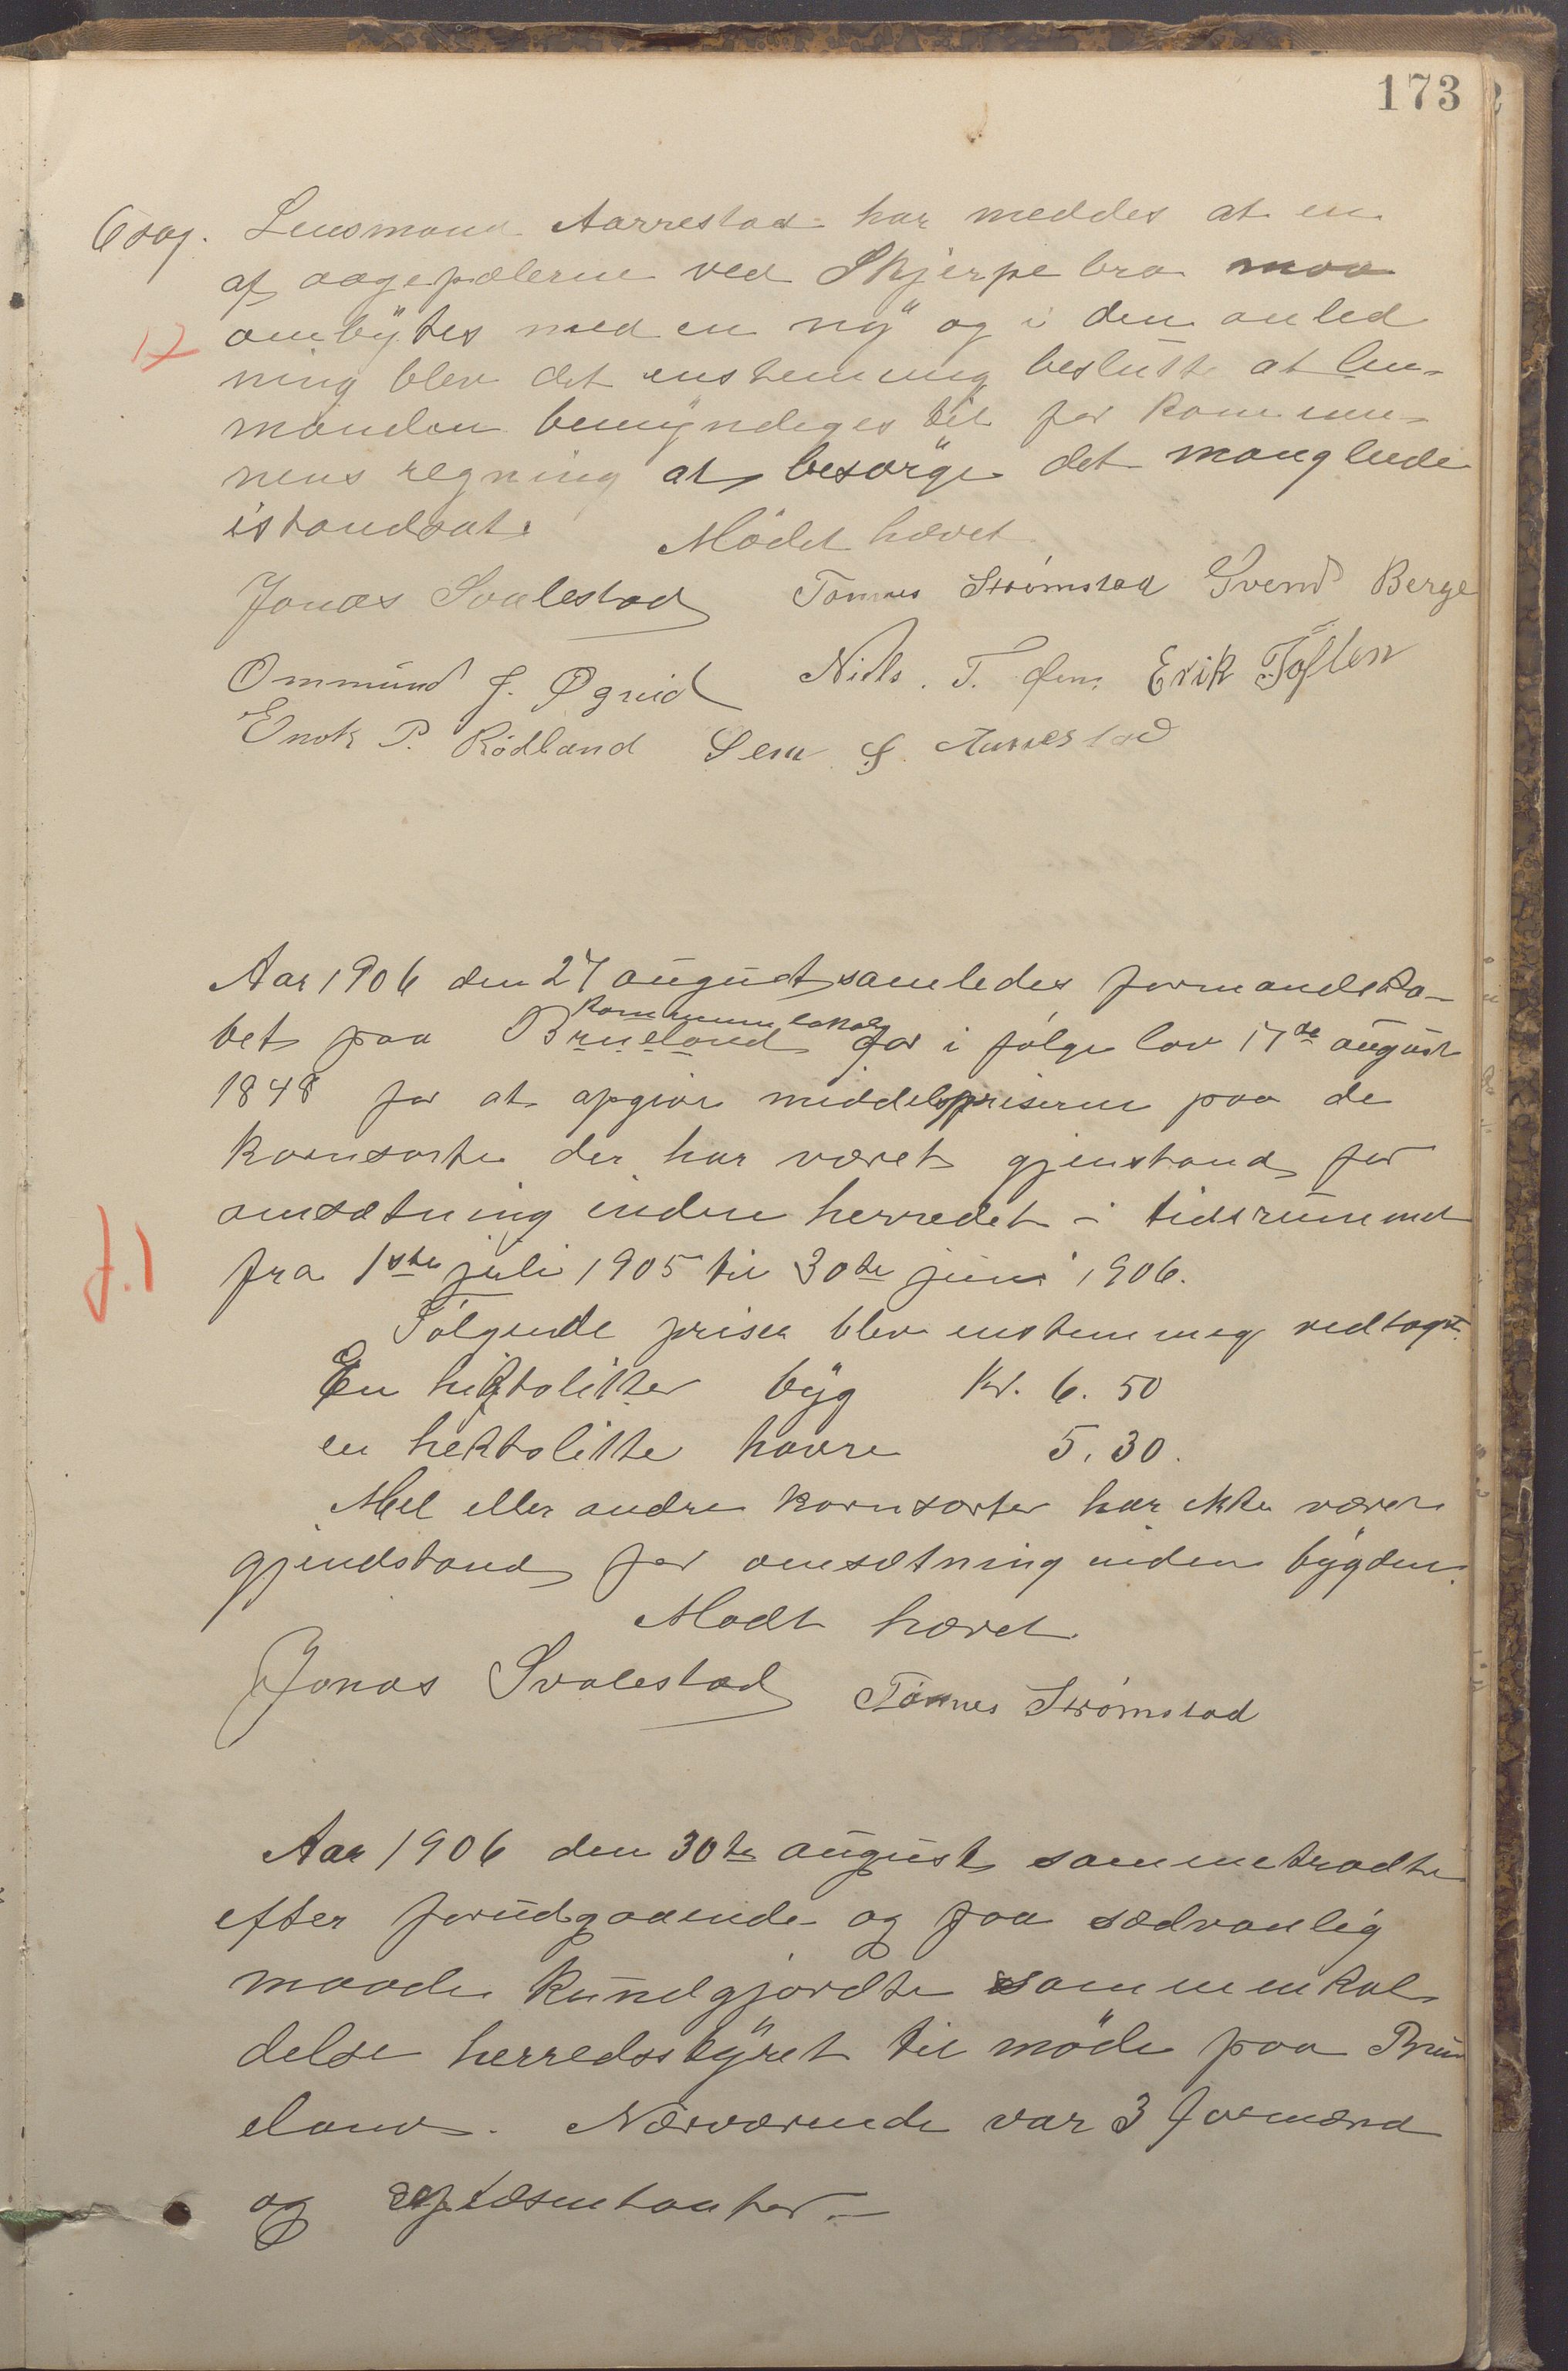 173
6 sag. Lensmand Aarrestad har meddelt at en
af aagepælerne ved Skjerpe bro maa
ombÿtes med en nÿ og i den anled
17
ning blev det enstemmig beslutte at len-
manden bemÿndiges til for kommu-
nens regning at besörge det manglende
istandsat. Mödet hævet
Jonas Svalestad Tønnes Strømstad Svend Berge
Ommund J. Øgreid Niels. T. Erik Toften
Enok P. Rødland Sem S. Aarrestad
Aar 1906 den 27 august samledes formandska-
kommunelokale
bet paa Brueland for i følge lov 17de august
1848 for at opgive middelspriserne paa de
kornsorter der har været gjenstand for
omsætning inden herredet i tidsrummet
J.1
fra 1ste juli 1905 til 30te juni 1906.
Følgende priser blev enstemmig vedtaget.
En hektoliter bÿg Kr. 6. 50
en hektolitter havre 5. 30.
Mel eller andre kornsorter har ikke været
gjendstand for omsætning inden bÿgden.
Mødt hævet
Jonas Svalestad Tønnes Strømstad
Aar 1906 den 30te august sammetraadte
efter forudgaaende og paa sædvanlig
maade kundgjordte sammenkal
delse herredsstÿret til möde paa Brue
eland. Nærværende var 3 formænd
og repræsentanter.—